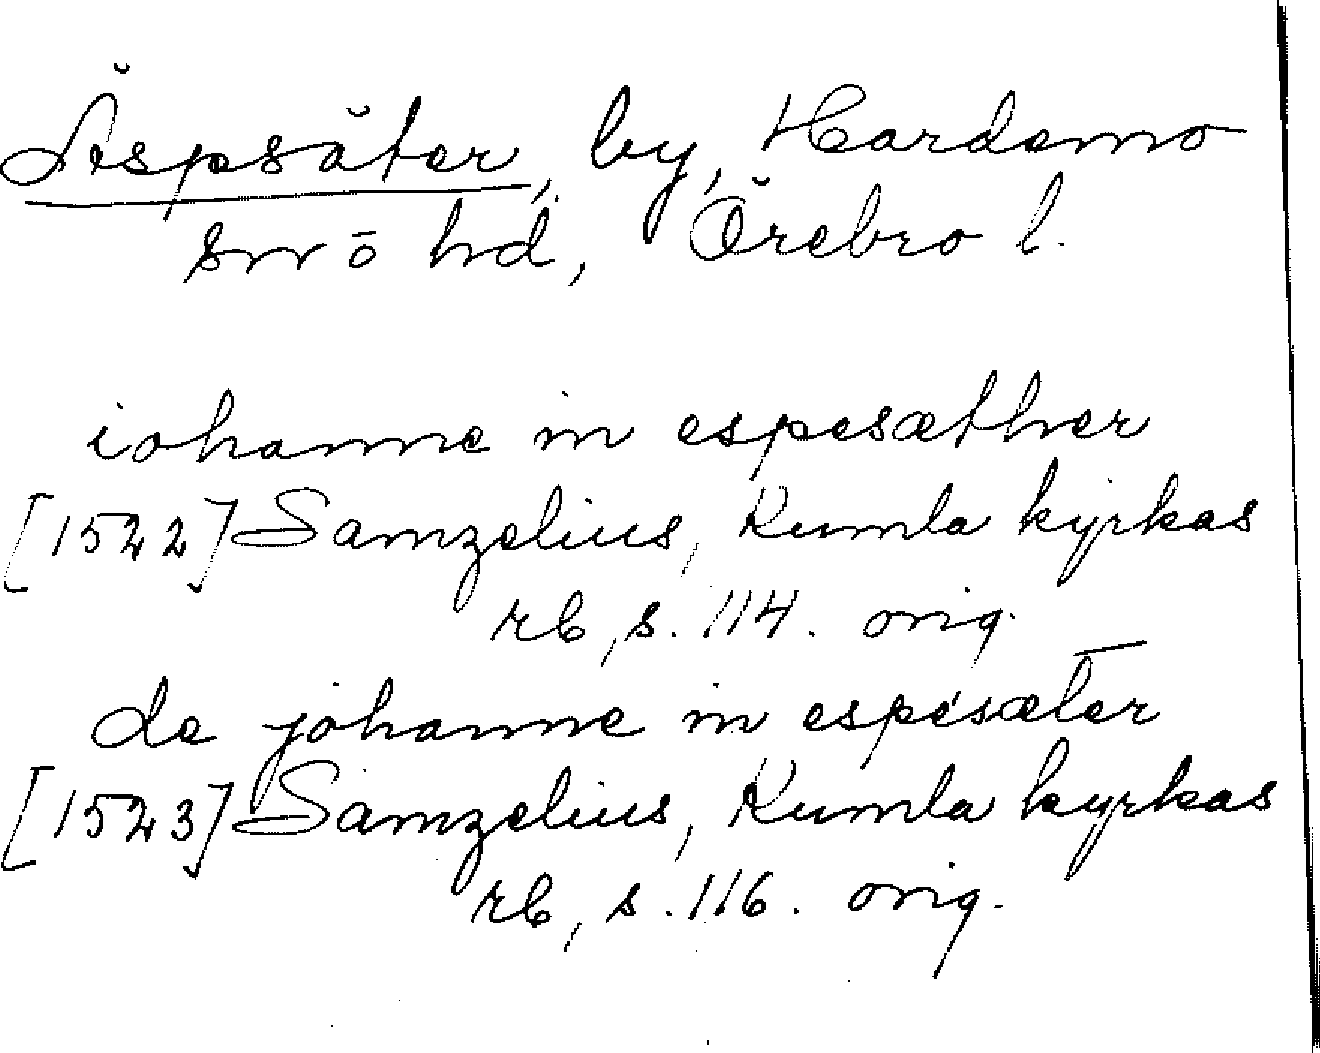 Äspsäter, by, Hardemo
sn ō hd, Örebro l.
iohanne in espesæther
[1522] Samzelius, Kumla kyrkas
rb, s. 114. orig.
de johanne in espesæter
[1523] Samzelius, Kumla kyrkas
rb, s. 116. orig.